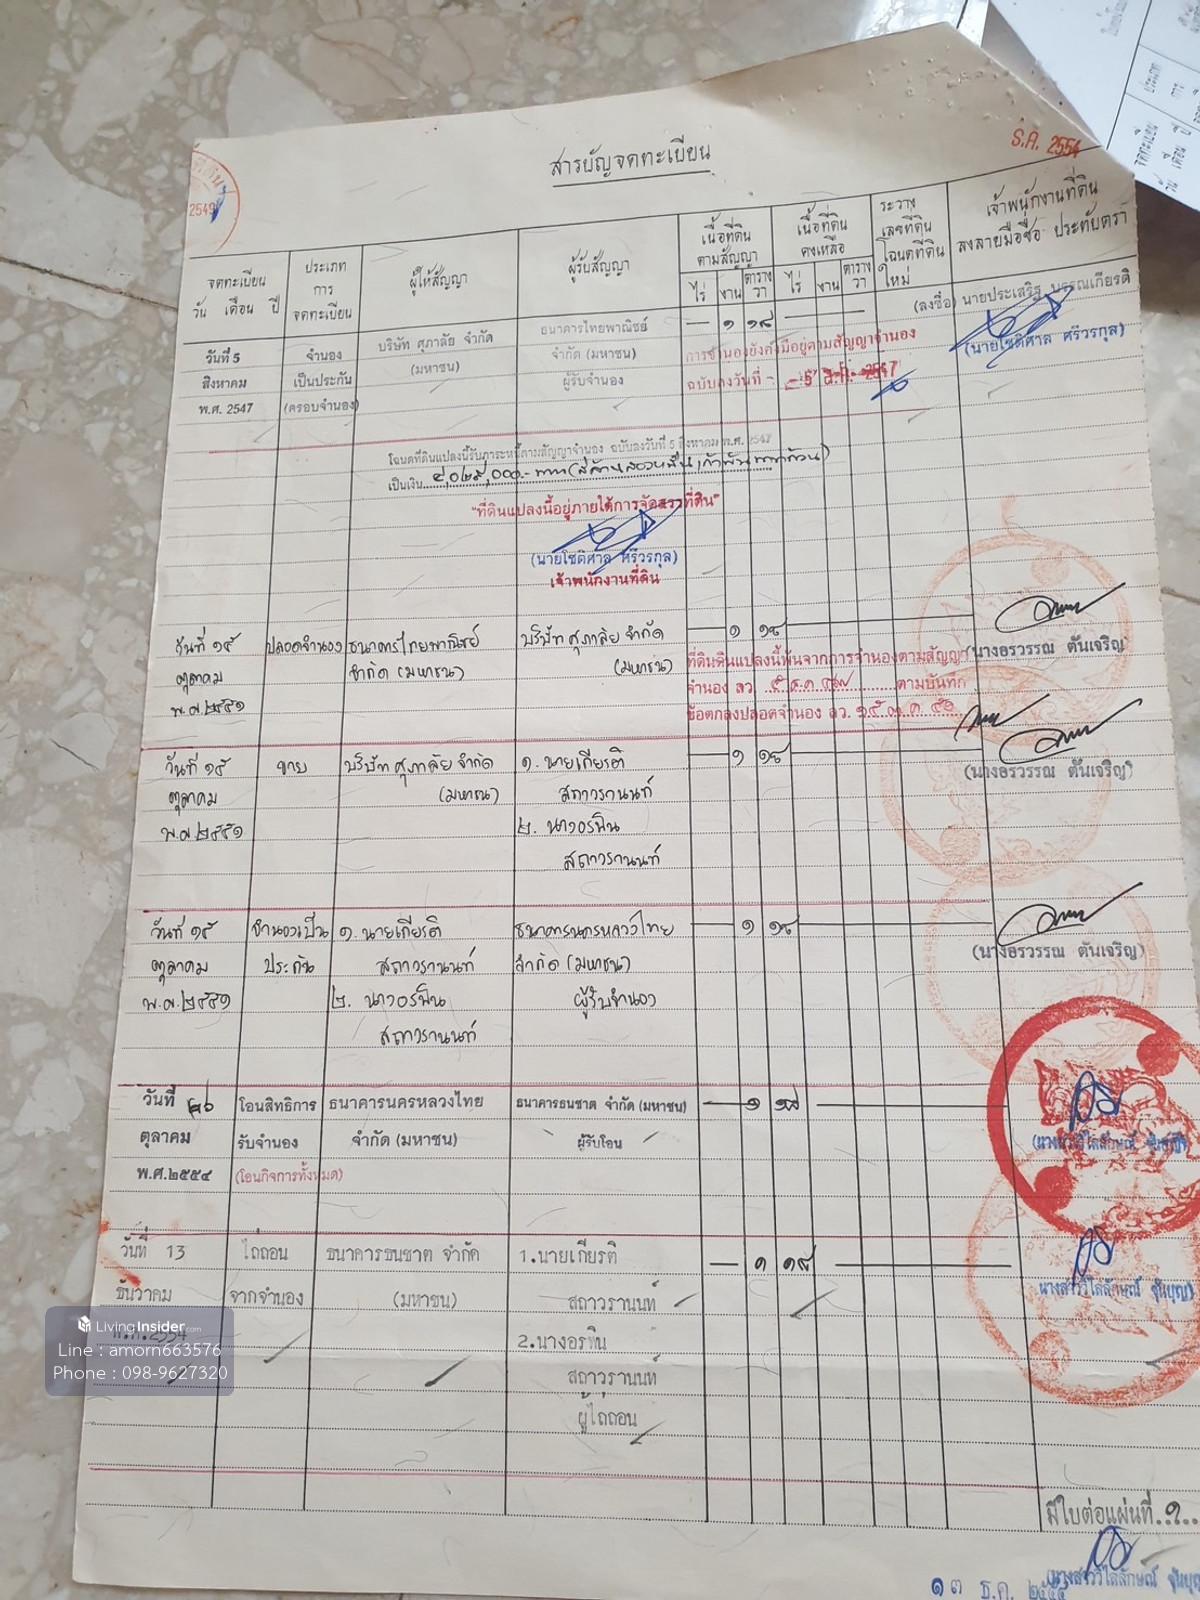 สารบัญจดทะเบียน
ธ.ค. 2554
2549
จดทะเบียน
วัน เดือน ปี
ประเภท
การ
จดทะเบียน
ผู้ให้สัญญา
ผู้รับสัญญา
เนื้อที่ดิน
ตามสัญญา
ไร่ งาน ตารางวา
เนื้อที่ดิน
คงเหลือ
ไร่ งาน ตารางวา
ระวาง
เลขที่ดิน
โฉนดที่ดิน
ใหม่
เจ้าพนักงานที่ดิน
ลงลายมือชื่อ ประทับตรา
วันที่ 5
สิงหาคม
พ.ศ. 2547
จำนอง
เป็นประกัน
(ครอบจำนอง)
บริษัท ศุภาลัย จำกัด
(มหาชน)
ธนาคารไทยพาณิชย์
จำกัด (มหาชน)
ผู้รับจำนอง
— ๑ ๑๘
การจำนองยังคงมีอยู่ตามสัญญาจำนอง
ฉบับลงวันที่ - 5 ส.ค. 2547
(ลงชื่อ) นายประเสริฐ บรรณเกียรติ
(นายโชติศาล ศรีวรกุล)
โฉนดที่ดินแปลงนี้รับภาระหนี้ตามสัญญาจำนอง ฉบับลงวันที่ 5 สิงหาคม พ.ศ. 2547
"ที่ดินแปลงนี้อยู่ภายใต้การจัดสรรที่ดิน"
(นายโชติศาล ศรีวรกุล)
เจ้าพนักงานที่ดิน
วันที่ ๑๕
ตุลาคม
พ.ศ.๒๕๕๑
ปลอดจำนอง
ธนาคารไทยพาณิชย์
จำกัด (มหาชน)
บริษัท ศุภาลัย จำกัด
(มหาชน)
— ๑ ๑๘
ที่ดินดินแปลงนี้พ้นจากการจำนองตามสัญญา
จำนอง ลว. ๕ ส.ค ๔๗ ตามบันทึก
ข้อตกลงปลอดจำนอง ลว. ๑๕ ต.ค ๕๑
(นางอรวรรณ ตันเจริญ)
วันที่ ๑๕
ตุลาคม
พ.ศ.๒๕๕๑
ขาย
บริษัท ศุภาลัย จำกัด
(มหาชน)
๑. นายเกียรติ
สถาวรานนท์
๒. นางอรพิน
สถาวรานนท์
— ๑ ๑๘
(นางอรวรรณ ตันเจริญ)
วันที่ ๑๕
ตุลาคม
พ.ศ.๒๕๕๑
จำนองเป็น
ประกัน
๑. นายเกียรติ
สถาวรานนท์
๒. นางอรพิน
สถาวรานนท์
ธนาคารนครหลวงไทย
จำกัด (มหาชน)
ผู้รับจำนอง
— ๑ ๑๘
(นางอรวรรณ ตันเจริญ)
วันที่ ๒๖
ตุลาคม
พ.ศ.๒๕๕๔
โอนสิทธิการ
รับจำนอง
(โอนกิจการทั้งหมด)
ธนาคารนครหลวงไทย
จำกัด (มหาชน)
ธนาคารธนชาต จำกัด (มหาชน)
ผู้รับโอน
— ๑ ๑๘
วันที่ 13
ธันวาคม
พ.ศ.2554
ไถ่ถอน
จากจำนอง
ธนาคารธนชาต จำกัด
(มหาชน)
1.นายเกียรติ
สถาวรานนท์
2.นางอรพิน
สถาวรานนท์
ผู้ไถ่ถอน
— ๑ ๑๘
นางสาววิไลลักษณ์ จุ้นบุญ)
มีใบต่อแผ่นที่..๑..
(นางสาววิไลลักษณ์ จุ้นบุญ
๑๓ ธ.ค. ๒๕๕๔
LivingInsider.com
Line : amorn663576
Phone : 098-9627320